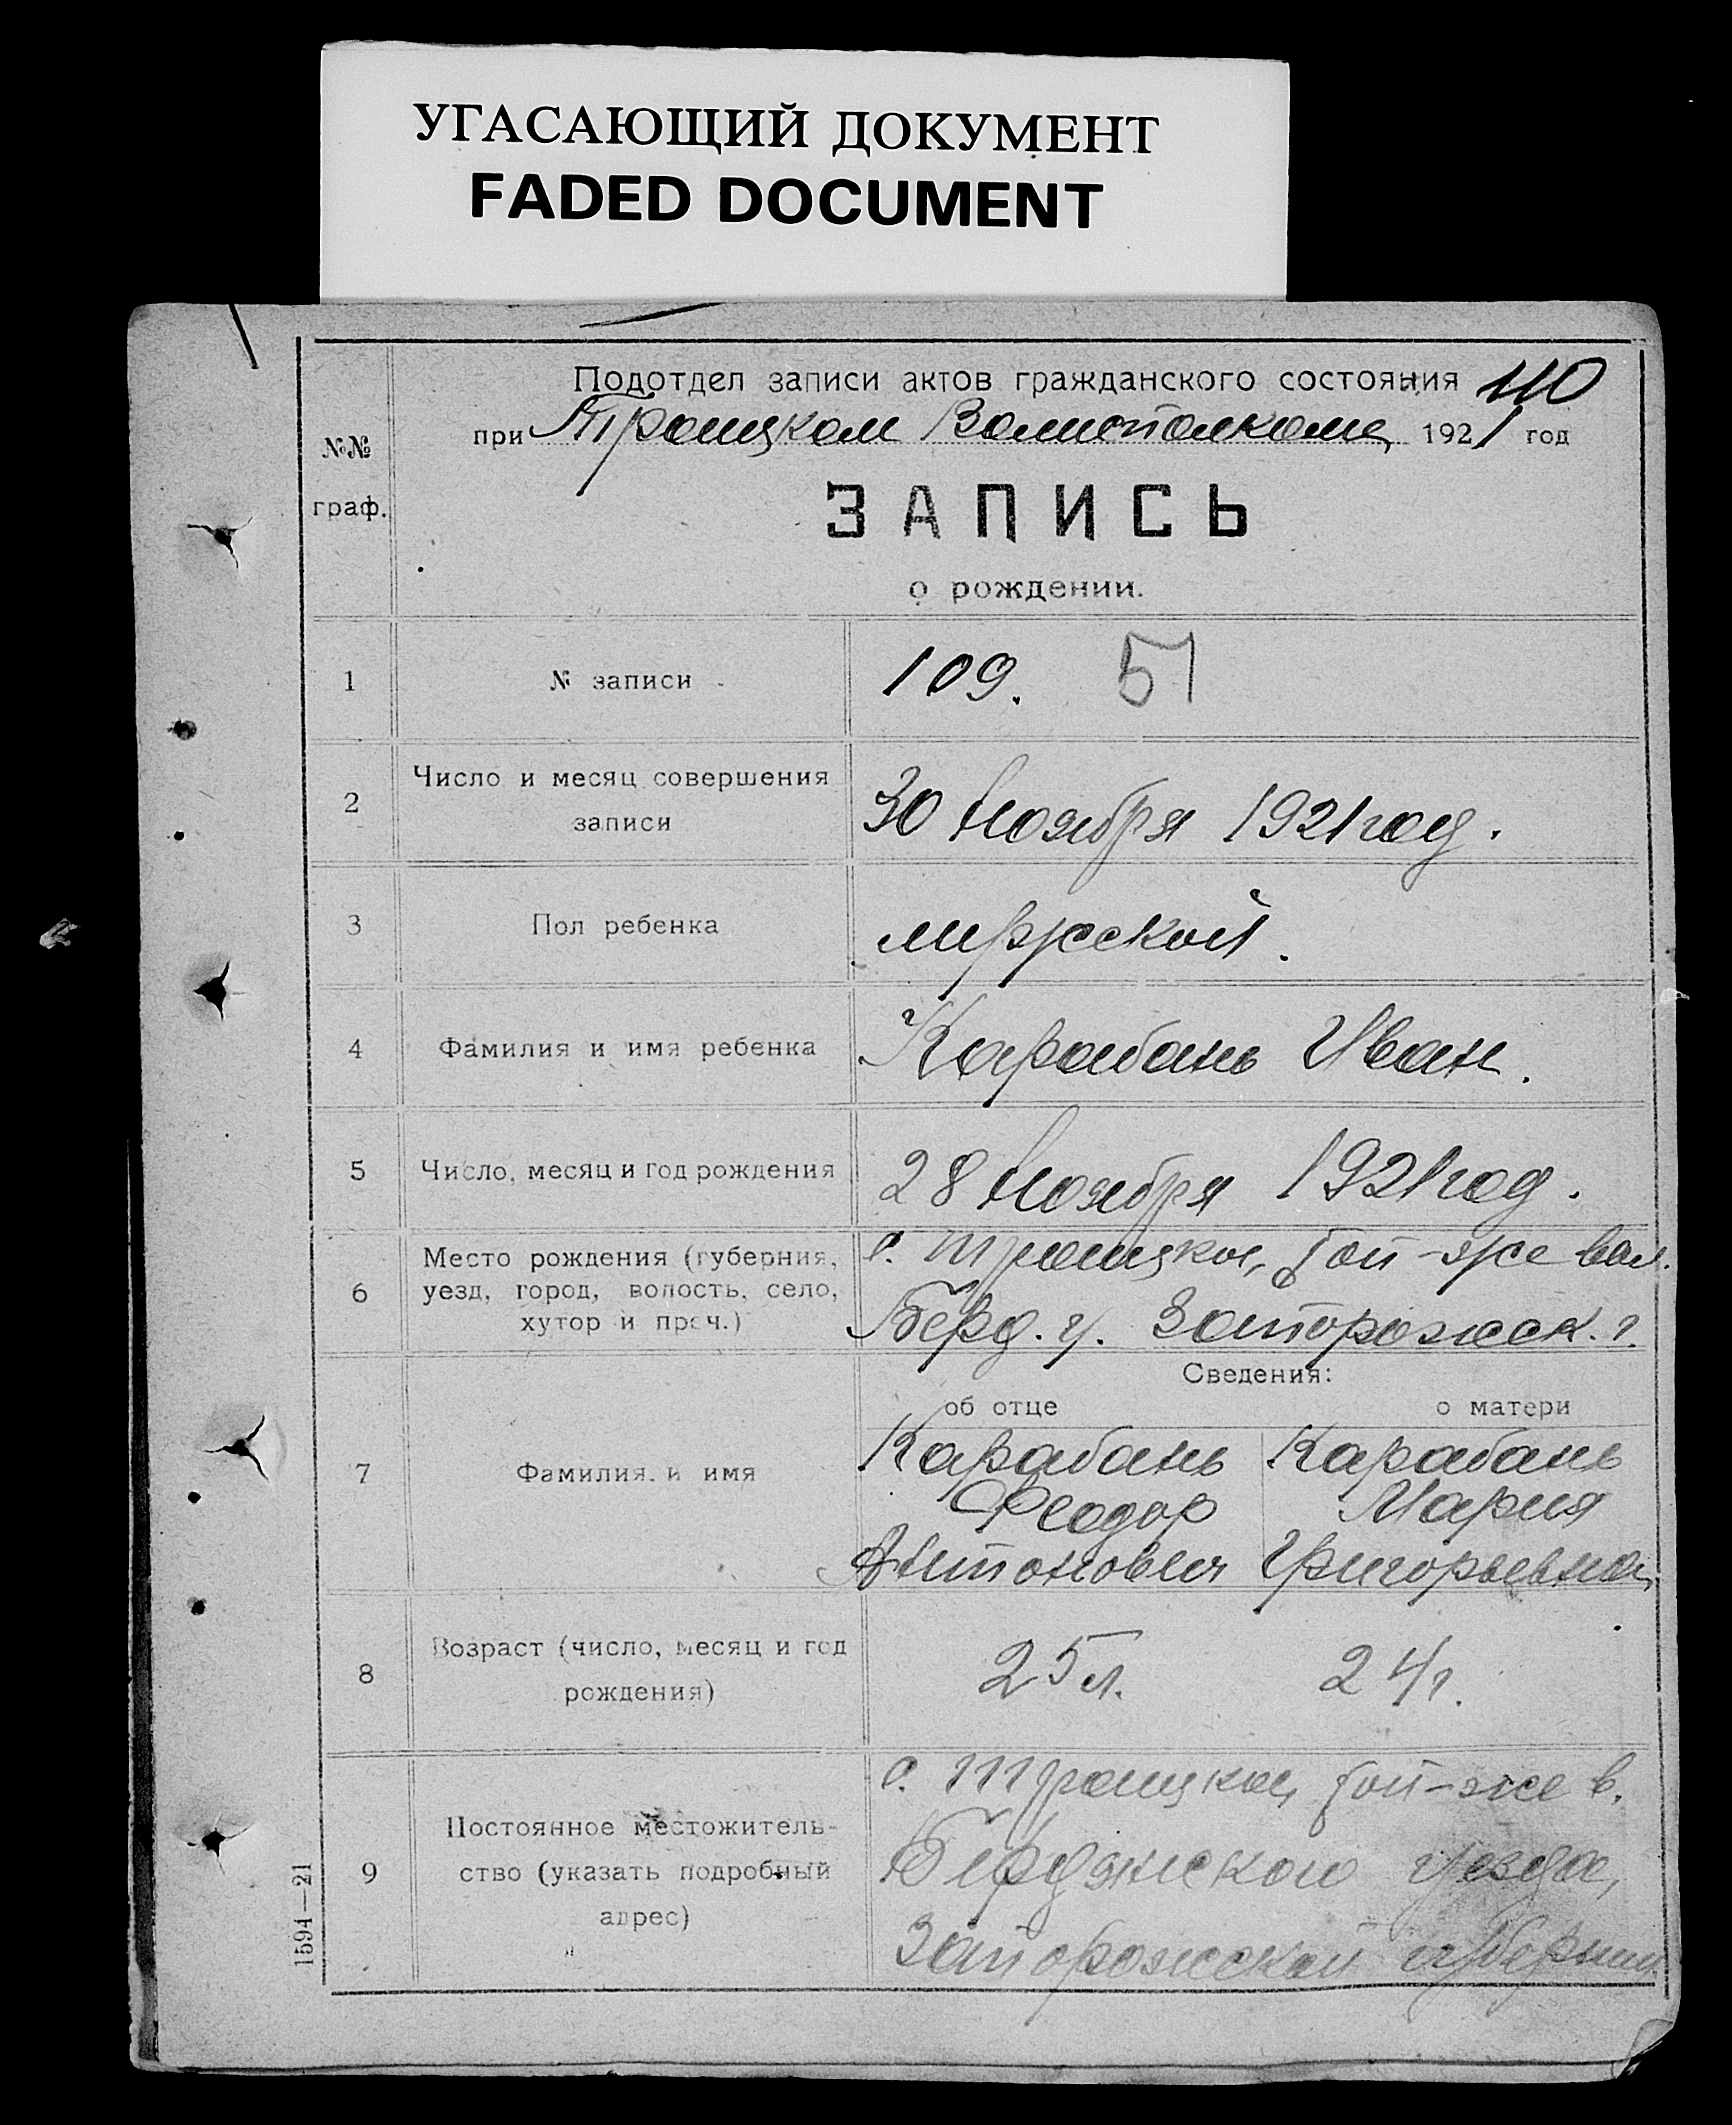 УГАСАЮЩИЙ ДОКУМЕНТ
FADED DOCUMENT
Подотдел записи актов гражданского состояния 110
при Троицком Волисполкоме 1921 год
№№
граф.
ЗАПИСЬ
о рождении.
1 № записи 109. 51
2 Число и месяц совершения
записи
30 Ноября 1921 год.
3 Пол ребенка мужской.
4 Фамилия и имя ребенка Карабань Иван.
5 Число, месяц и год рождения 28 Ноября 1921 год.
6 Место рождения (губерния,
уезд, город, волость, село,
хутор и проч.)
с. Троицкое, той-же вол.
Берд. у. Запорожск. г.
Сведения:
об отце о матери
7 Фамилия и имя
Карабань Карабань
Феодор Мария
Антонович Григорьевна
8 Возраст (число, месяц и год
рождения)
25 л. 24 г.
9 Постоянное местожитель-
ство (указать подробный
адрес)
с. Троицкое, той-же в.
Бердянского уезда,
Запорожской губернии
1594—21